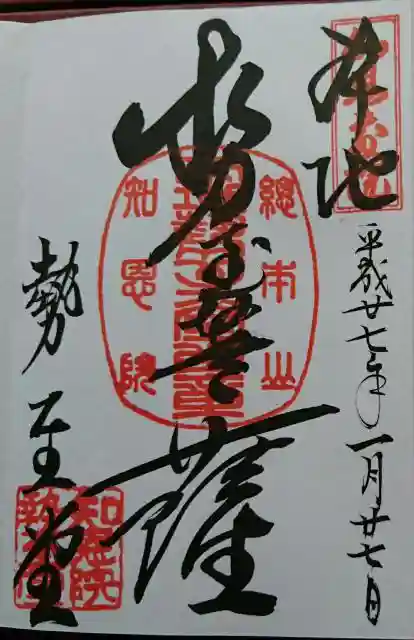 本地
平成廿七年一月廿七日
勢至菩薩
総本山
知恩院
勢至堂
知恩院
勢至堂